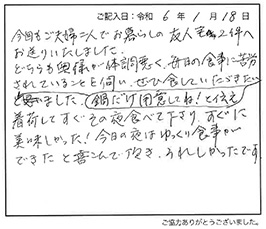 ご記入日：令和 6年 1月 18日
今回もご夫婦二人でお暮らしの友人宅2件へ
お送りいたしました。
どちらも奥様が体調悪く、毎日の食事に苦労
されていることを伺い、ぜひ食していただきたい
と思いました。鍋だけ用意してね！と伝え
着荷してすぐその夜食べて下さり、すぐに
美味しかった！今日の夜はゆっくり食事が
できたと喜んで頂き、うれしかったです。
ご協力ありがとうございました。